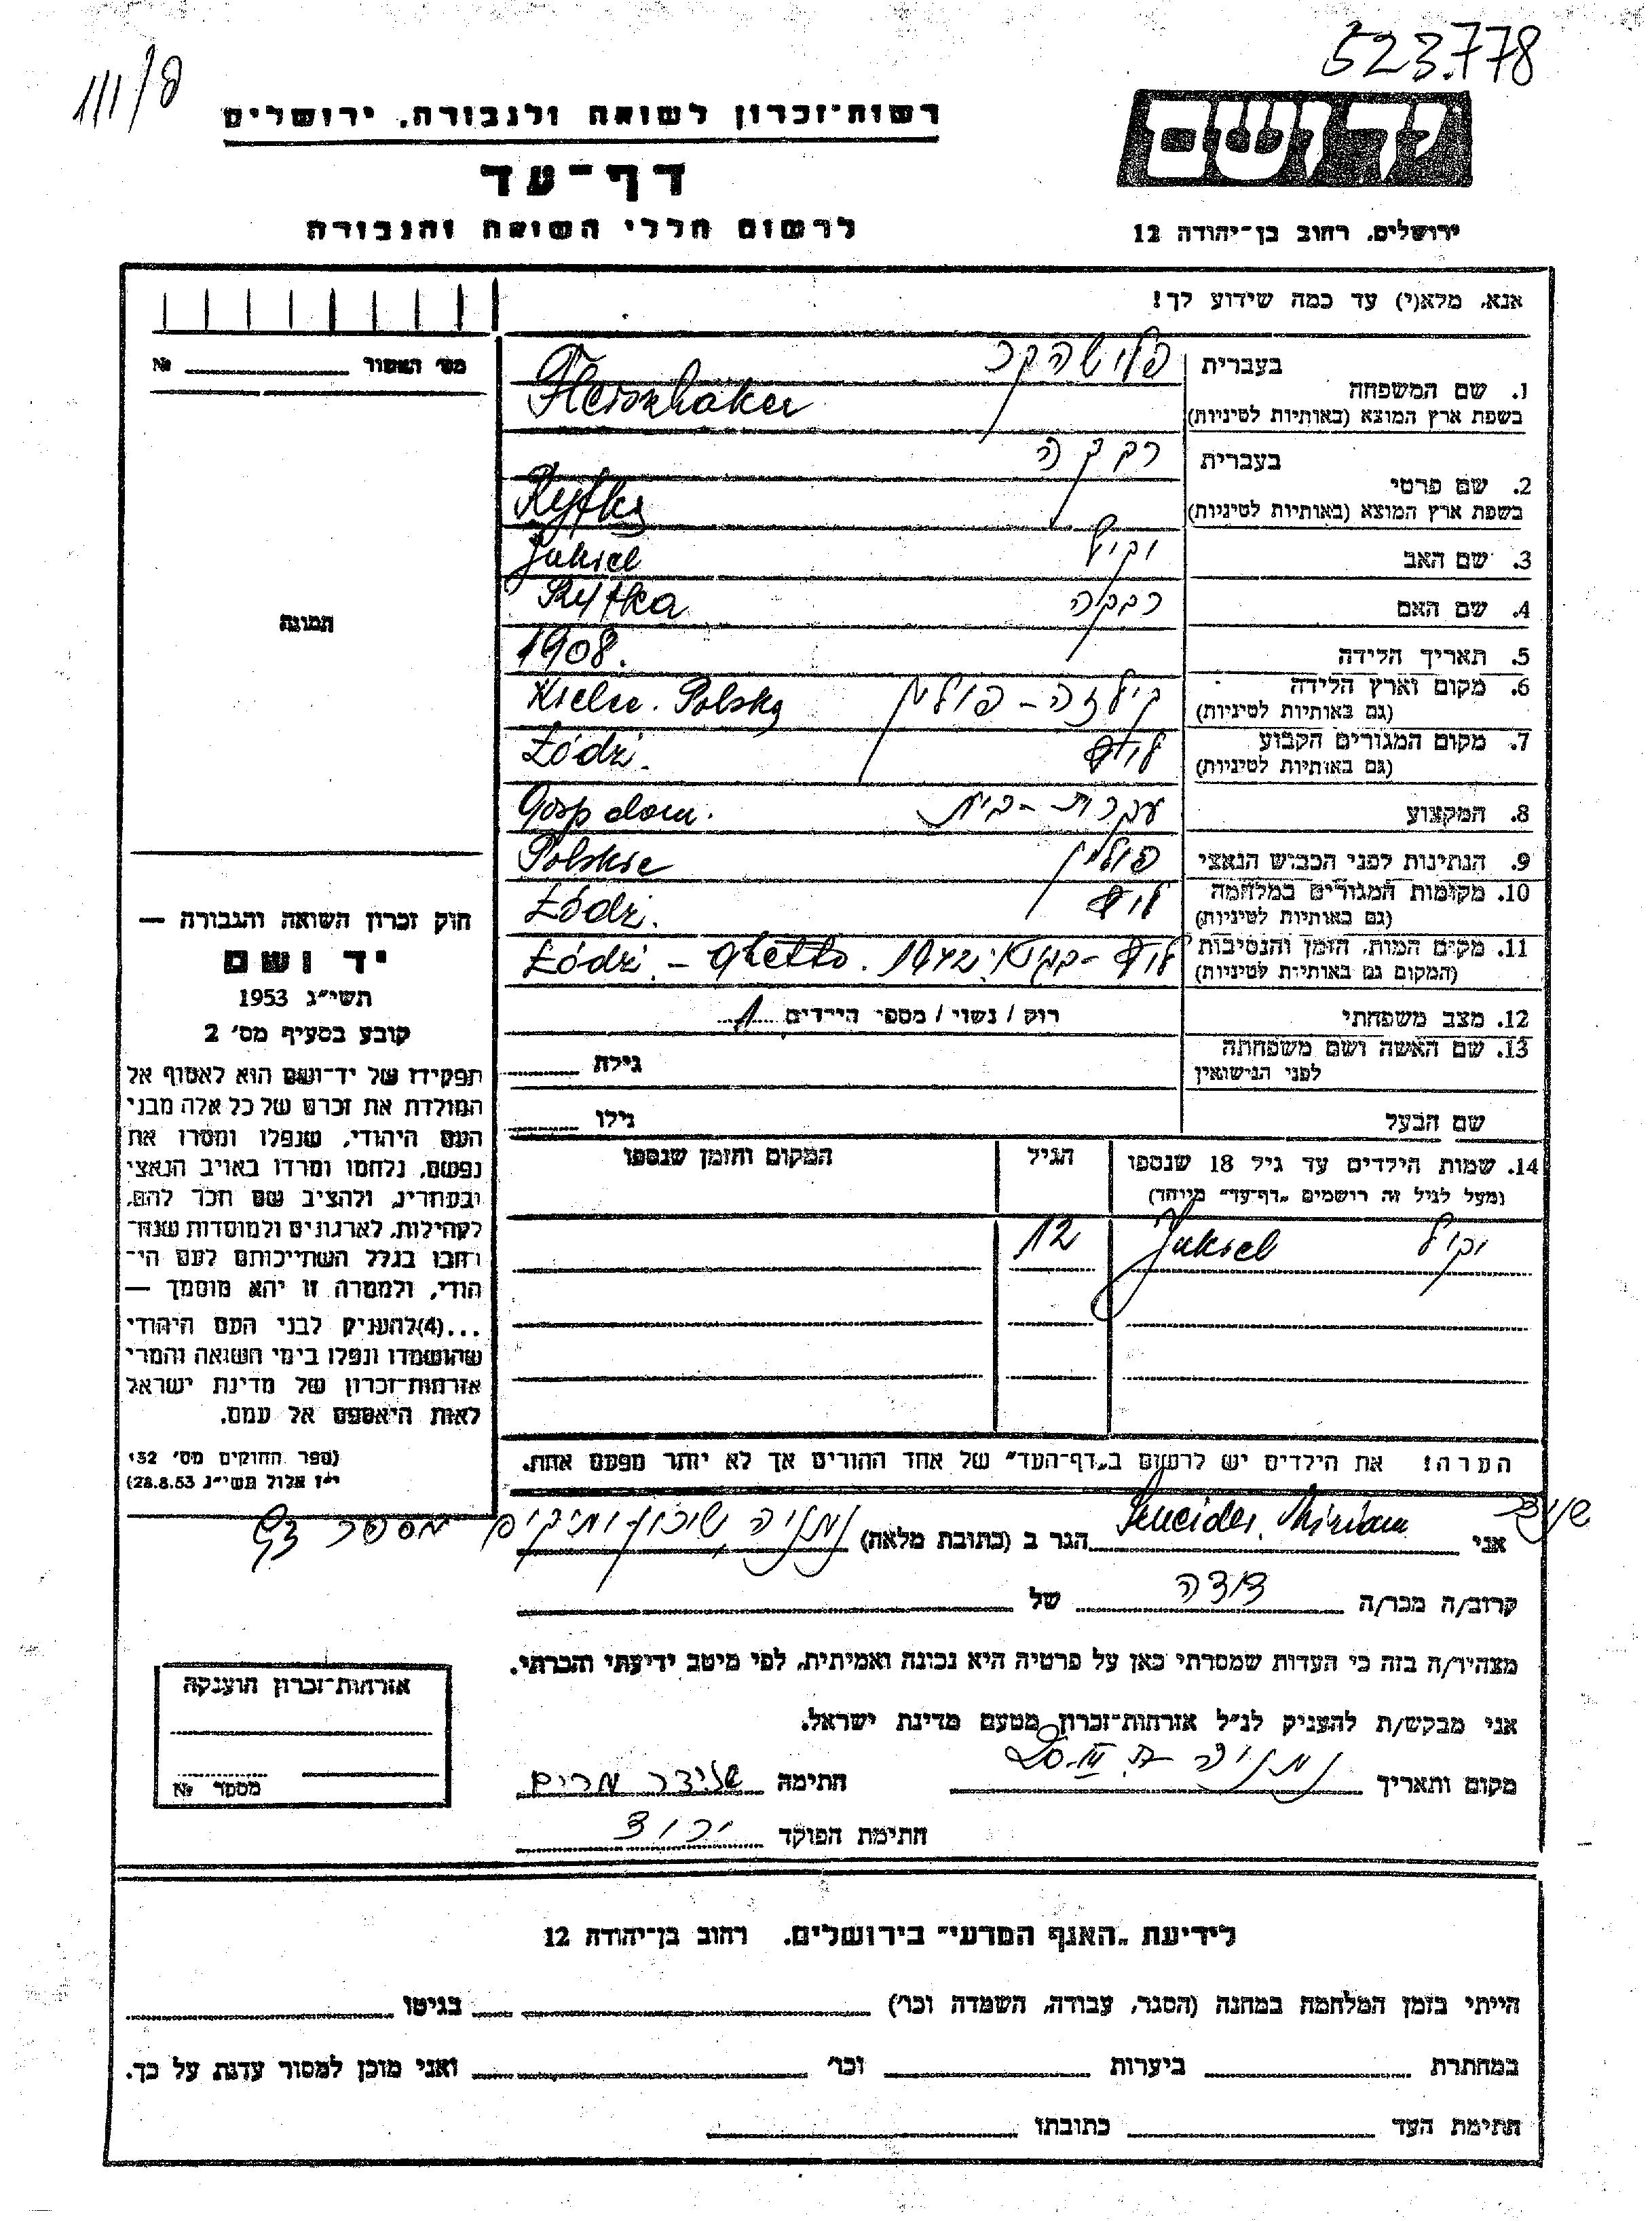 523.778
פ/III
יד ושם
רשות־זכרון לשואה ולגבורה, ירושלים
דף־עד
לרשום חללי השואה והגבורה
ירושלים, רחוב בן־יהודה 12
אנא, מלא(י) עד כמה שידוע לך!
מס׳ האשור № 
1. שם המשפחה
בעברית
בשפת ארץ המוצא (באותיות לטיניות)
2. שם פרטי
בעברית רבקה
בשפת ארץ המוצא (באותיות לטיניות) Ryfka
3. שם האב Jukiel
4. שם האם רבקה Ryfka
5. תאריך הלידה 1908.
6. מקום וארץ הלידה קילצה - פולין Kielce. Polska
(גם באותיות לטיניות)
7. מקום המגורים הקבוע לודז Łódź.
(גם באותיות לטיניות)
8. המקצוע עקרת-בית Gosp dom.
9. הנתינות לפני הכבוש הנאצי פולין Polskie
10. מקומות המגורים במלחמה לודז Łódź.
(גם באותיות לטיניות)
11. מקום המות, הזמן והנסיבות לודז - בגיטו 1942 Łódź. - Ghetto.
(המקום גם באותיות לטיניות)
12. מצב משפחתי רווק / נשוי / מספר הילדים 1
13. שם האשה ושם משפחתה
לפני הנישואין
גילה
שם הבעל גילו
14. שמות הילדים עד גיל 18 שנספו
(מעל לגיל זה רושמים „דף־עד״ מיוחד)
הגיל
המקום והזמן שנספו
Jukiel 12
הערה! את הילדים יש לרשום ב„דף־העד״ של אחד ההורים אך לא יותר מפעם אחת.
תמונה
חוק זכרון השואה והגבורה —
יד ושם
תשי״ג 1953
קובע בסעיף מס׳ 2
תפקידו של יד־ושם הוא לאסוף אל
המולדת את זכרם של כל אלה מבני
העם היהודי, שנפלו ומסרו את
נפשם, נלחמו ומרדו באויב הנאצי
ובעוזריו, ולהציב שם וזכר להם,
לקהילות, לארגונים ולמוסדות שנח־
רבו בגלל השתייכותם לעם הי־
הודי, ולמטרה זו יהא מוסמך —
...(4)להעניק לבני העם היהודי
שהושמדו ונפלו בימי השואה והמרי
אזרחות־זכרון של מדינת ישראל
לאות היאספם אל עמם.
(ספר החוקים מס׳ 132
י״ז אלול תשי״ג 28.8.53)
אני Miriam הגר ב (כתובת מלאה) נתניה שיכון ותיקים מספר
קרוב/ה מכר/ה דודה של
מצהיר/ה בזה כי העדות שמסרתי כאן על פרטיה היא נכונה ואמיתית, לפי מיטב ידיעתי והכרתי.
אני מבקש/ת להעניק לנ״ל אזרחות־זכרון מטעם מדינת ישראל.
מקום ותאריך נתניה חתימה שניידר מרים
חתימת הפוקד
אזרחות־זכרון הוענקה
מספר №
לידיעת „האגף המדעי״ בירושלים. רחוב בן־יהודה 12
הייתי בזמן המלחמה במחנה (הסגר, עבודה, השמדה וכו׳) בגיטו
במחתרת ביערות וכו׳ ואני מוכן למסור עדות על כך.
חתימת העד כתובתו